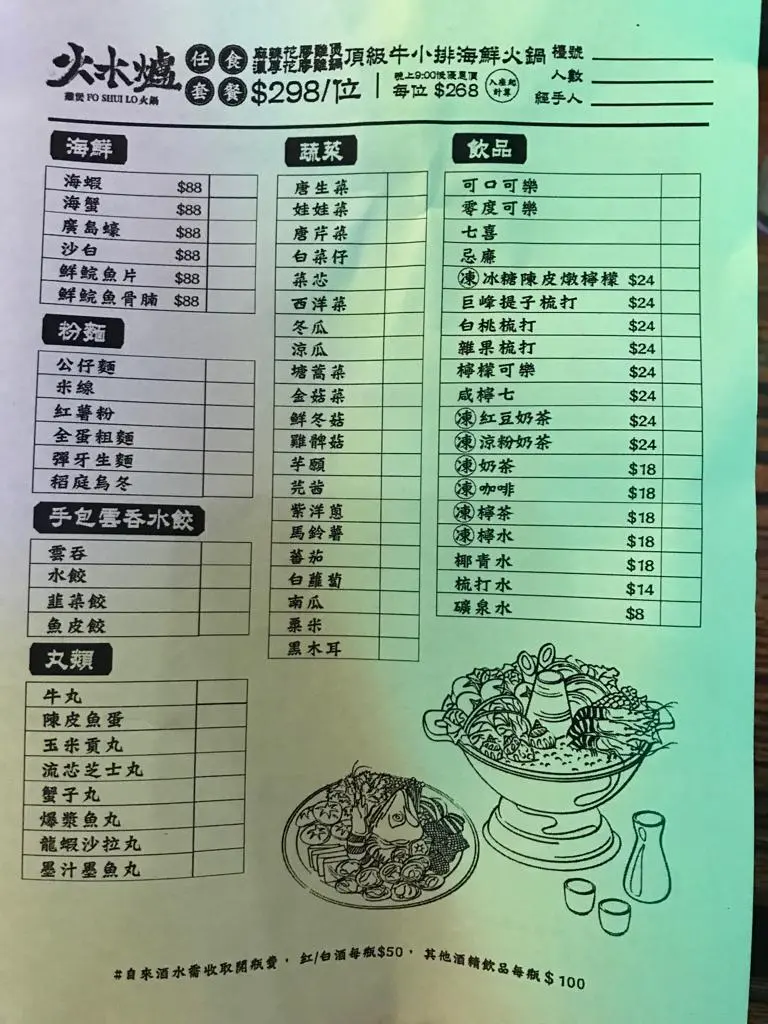 火水爐
雞煲 FO SHUI LO 火鍋
任食套餐
麻辣花膠雞煲
濃厚花膠雞鍋
頂級牛小排海鮮火鍋
$298/位
晚上9:00後優惠價
每位 $268
入座起計算
檯號
人數
經手人
海鮮
海蝦 $88
海蟹 $88
廣島蠔 $88
沙白 $88
鮮鯇魚片 $88
鮮鯇魚骨腩 $88
粉麵
公仔麵
米線
紅薯粉
全蛋粗麵
彈牙生麵
稻庭烏冬
手包雲吞水餃
雲吞
水餃
韮菜餃
魚皮餃
丸類
牛丸
陳皮魚蛋
玉米貢丸
流芯芝士丸
蟹子丸
爆漿魚丸
龍蝦沙拉丸
墨汁墨魚丸
蔬菜
唐生菜
娃娃菜
唐芹菜
白菜仔
菜芯
西洋菜
冬瓜
涼瓜
塘蒿菜
金菇菜
鮮冬菇
雞髀菇
芋頭
芫茜
紫洋蔥
馬鈴薯
蕃茄
白蘿蔔
南瓜
粟米
黑木耳
飲品
可口可樂
零度可樂
七喜
忌廉
凍冰糖陳皮燉檸檬 $24
巨峰提子梳打 $24
白桃梳打 $24
雜果梳打 $24
檸檬可樂 $24
咸檸七 $24
凍紅豆奶茶 $24
凍涼粉奶茶 $24
凍奶茶 $18
凍咖啡 $18
凍檸茶 $18
凍檸水 $18
椰青水 $18
梳打水 $14
礦泉水 $8
#自來酒水需收取開瓶費，紅/白酒每瓶$50，其他酒精飲品每瓶$100